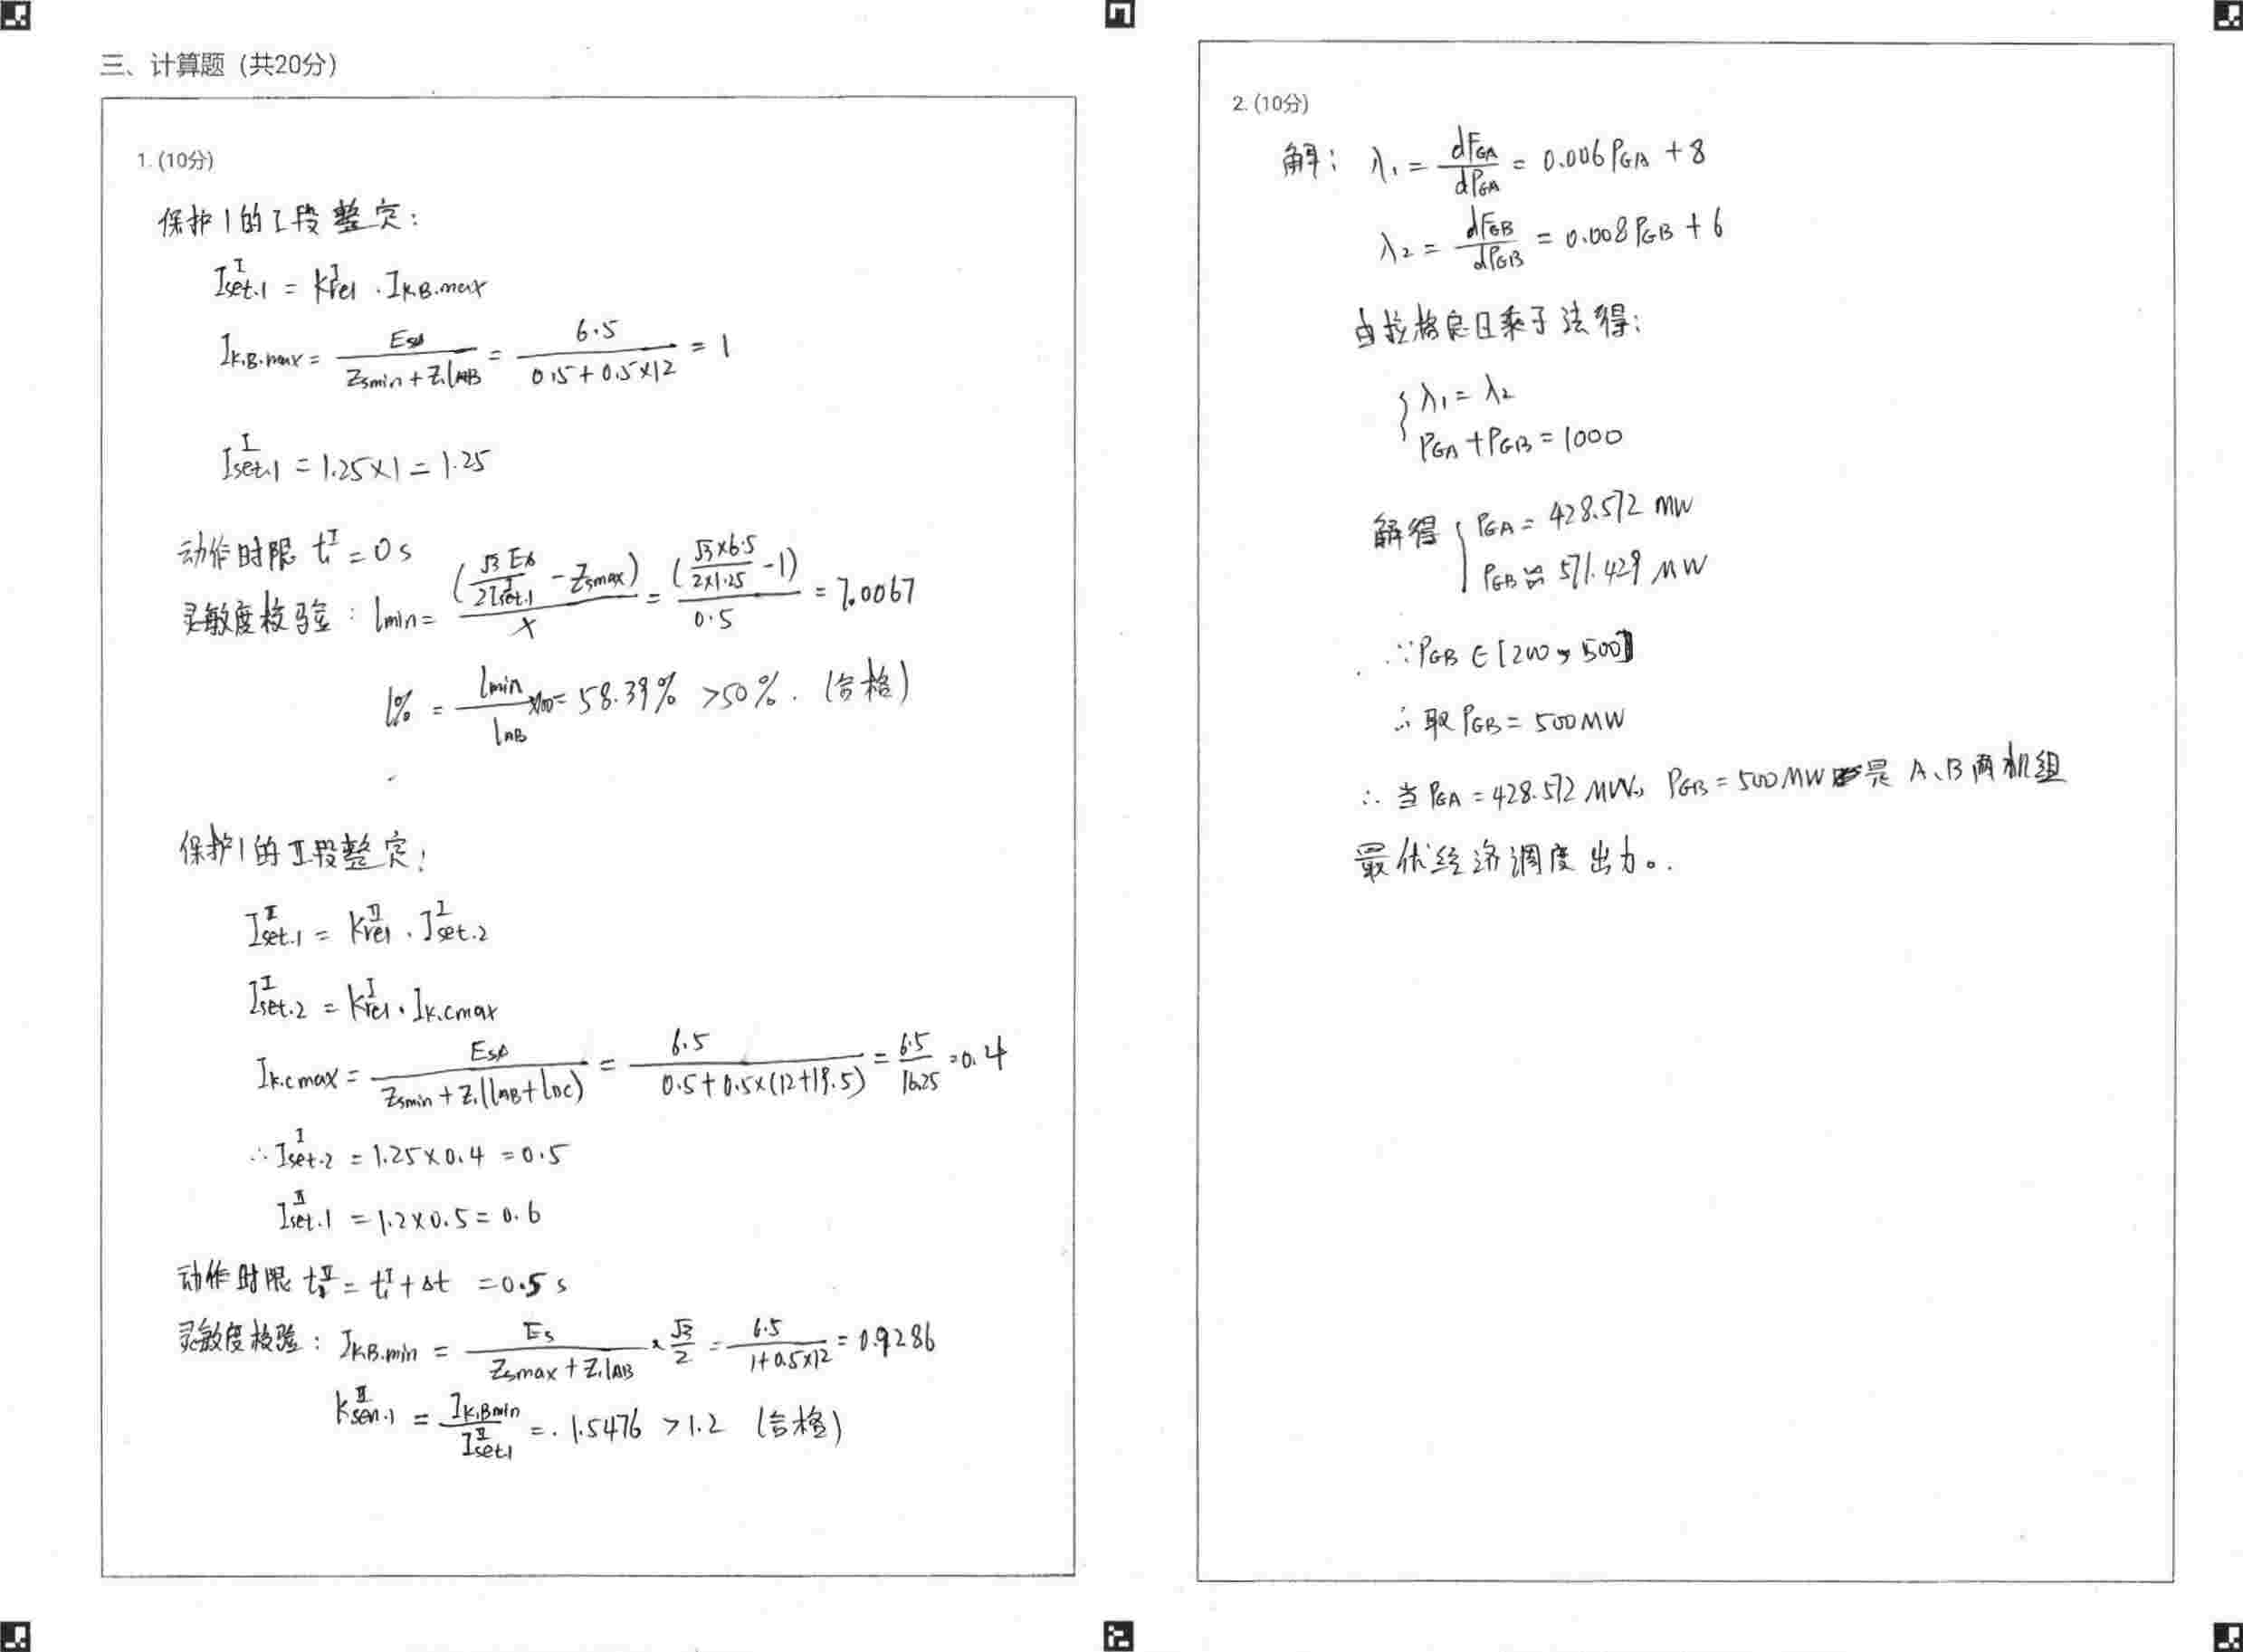 三、计算题（共20分）
1. (10分)
保护1的I段整定：
I^I_{set.1} = K^I_{rel} · I_{K.B.max}
I_{K.B.max} = \frac{E_{sφ}}{Z_{smin} + Z_1 l_{AB}} = \frac{6.5}{0.5 + 0.5×12} = 1
I^I_{set.1} = 1.25×1 = 1.25
动作时限 t_1^I = 0s
灵敏度校验：l_{min} = \frac{(\frac{√3 E_φ}{2 I^I_{set.1}} - Z_{smax})}{X} = \frac{(\frac{√3×6.5}{2×1.25} - 1)}{0.5} = 7.0067
l% = \frac{l_{min}}{l_{AB}} ×100 = 58.39% >50%. (合格)
保护1的II段整定：
I^{II}_{set.1} = K^{II}_{rel} · I^I_{set.2}
I^I_{set.2} = K^I_{rel} · I_{K.cmax}
I_{K.cmax} = \frac{E_{sφ}}{Z_{smin} + Z_1(l_{AB} + l_{BC})} = \frac{6.5}{0.5 + 0.5×(12+19.5)} = \frac{6.5}{16.25} = 0.4
∴ I^I_{set.2} = 1.25×0.4 = 0.5
I^{II}_{set.1} = 1.2×0.5 = 0.6
动作时限 t_1^{II} = t_1^I + Δt = 0.5 s
灵敏度校验：I_{KB.min} = \frac{E_s}{Z_{smax} + Z_1 l_{AB}} × \frac{√3}{2} = \frac{6.5}{1+0.5×12} = 0.9286
K^{II}_{sen.1} = \frac{I_{K.Bmin}}{I^{II}_{set.1}} = 1.5476 >1.2 (合格)
2. (10分)
解：λ_1 = \frac{dF_{GA}}{dP_{GA}} = 0.006P_{GA} + 8
λ_2 = \frac{dF_{GB}}{dP_{GB}} = 0.008P_{GB} + 6
由拉格朗日乘子法得：
λ_1 = λ_2
P_{GA} + P_{GB} = 1000
解得 P_{GA} = 428.572 MW
P_{GB} = 571.429 MW
∵ P_{GB} ∈ [200, 500]
∴ 取 P_{GB} = 500MW
∴ 当 P_{GA} = 428.572 MW, P_{GB} = 500MW 是 A、B两机组
最优经济调度出力。